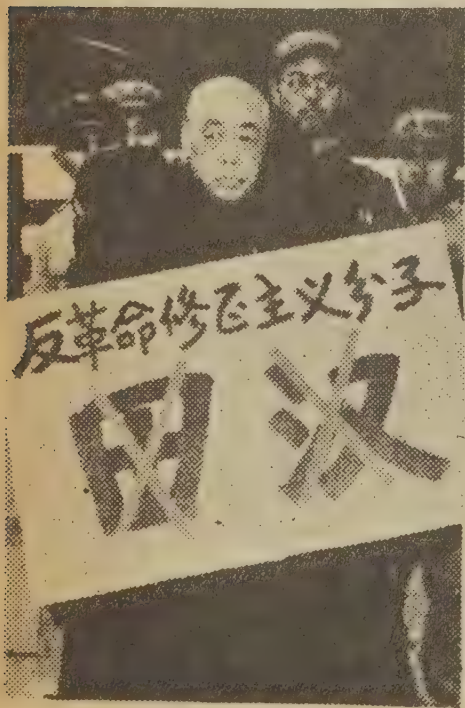 反革命修正主义分子
田汉